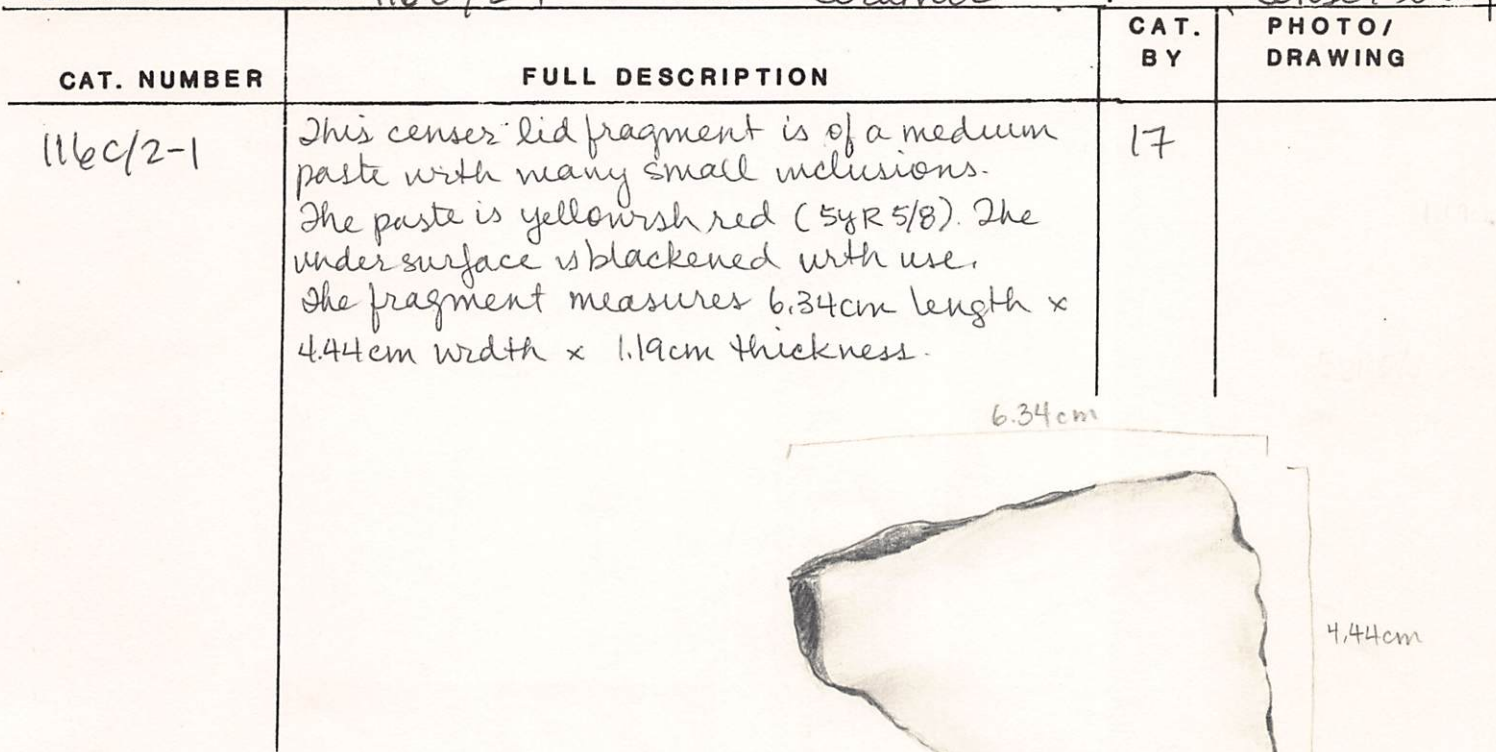 CAT. NUMBER
FULL DESCRIPTION
CAT. BY
PHOTO/ DRAWING
116C/2-1
This censer lid fragment is of a medium
paste with many small inclusions.
The paste is yellowish red (5YR 5/8). The
undersurface is blackened with use.
The fragment measures 6.34cm length x
4.44cm width x 1.19cm thickness.
17
6.34cm
4.44cm